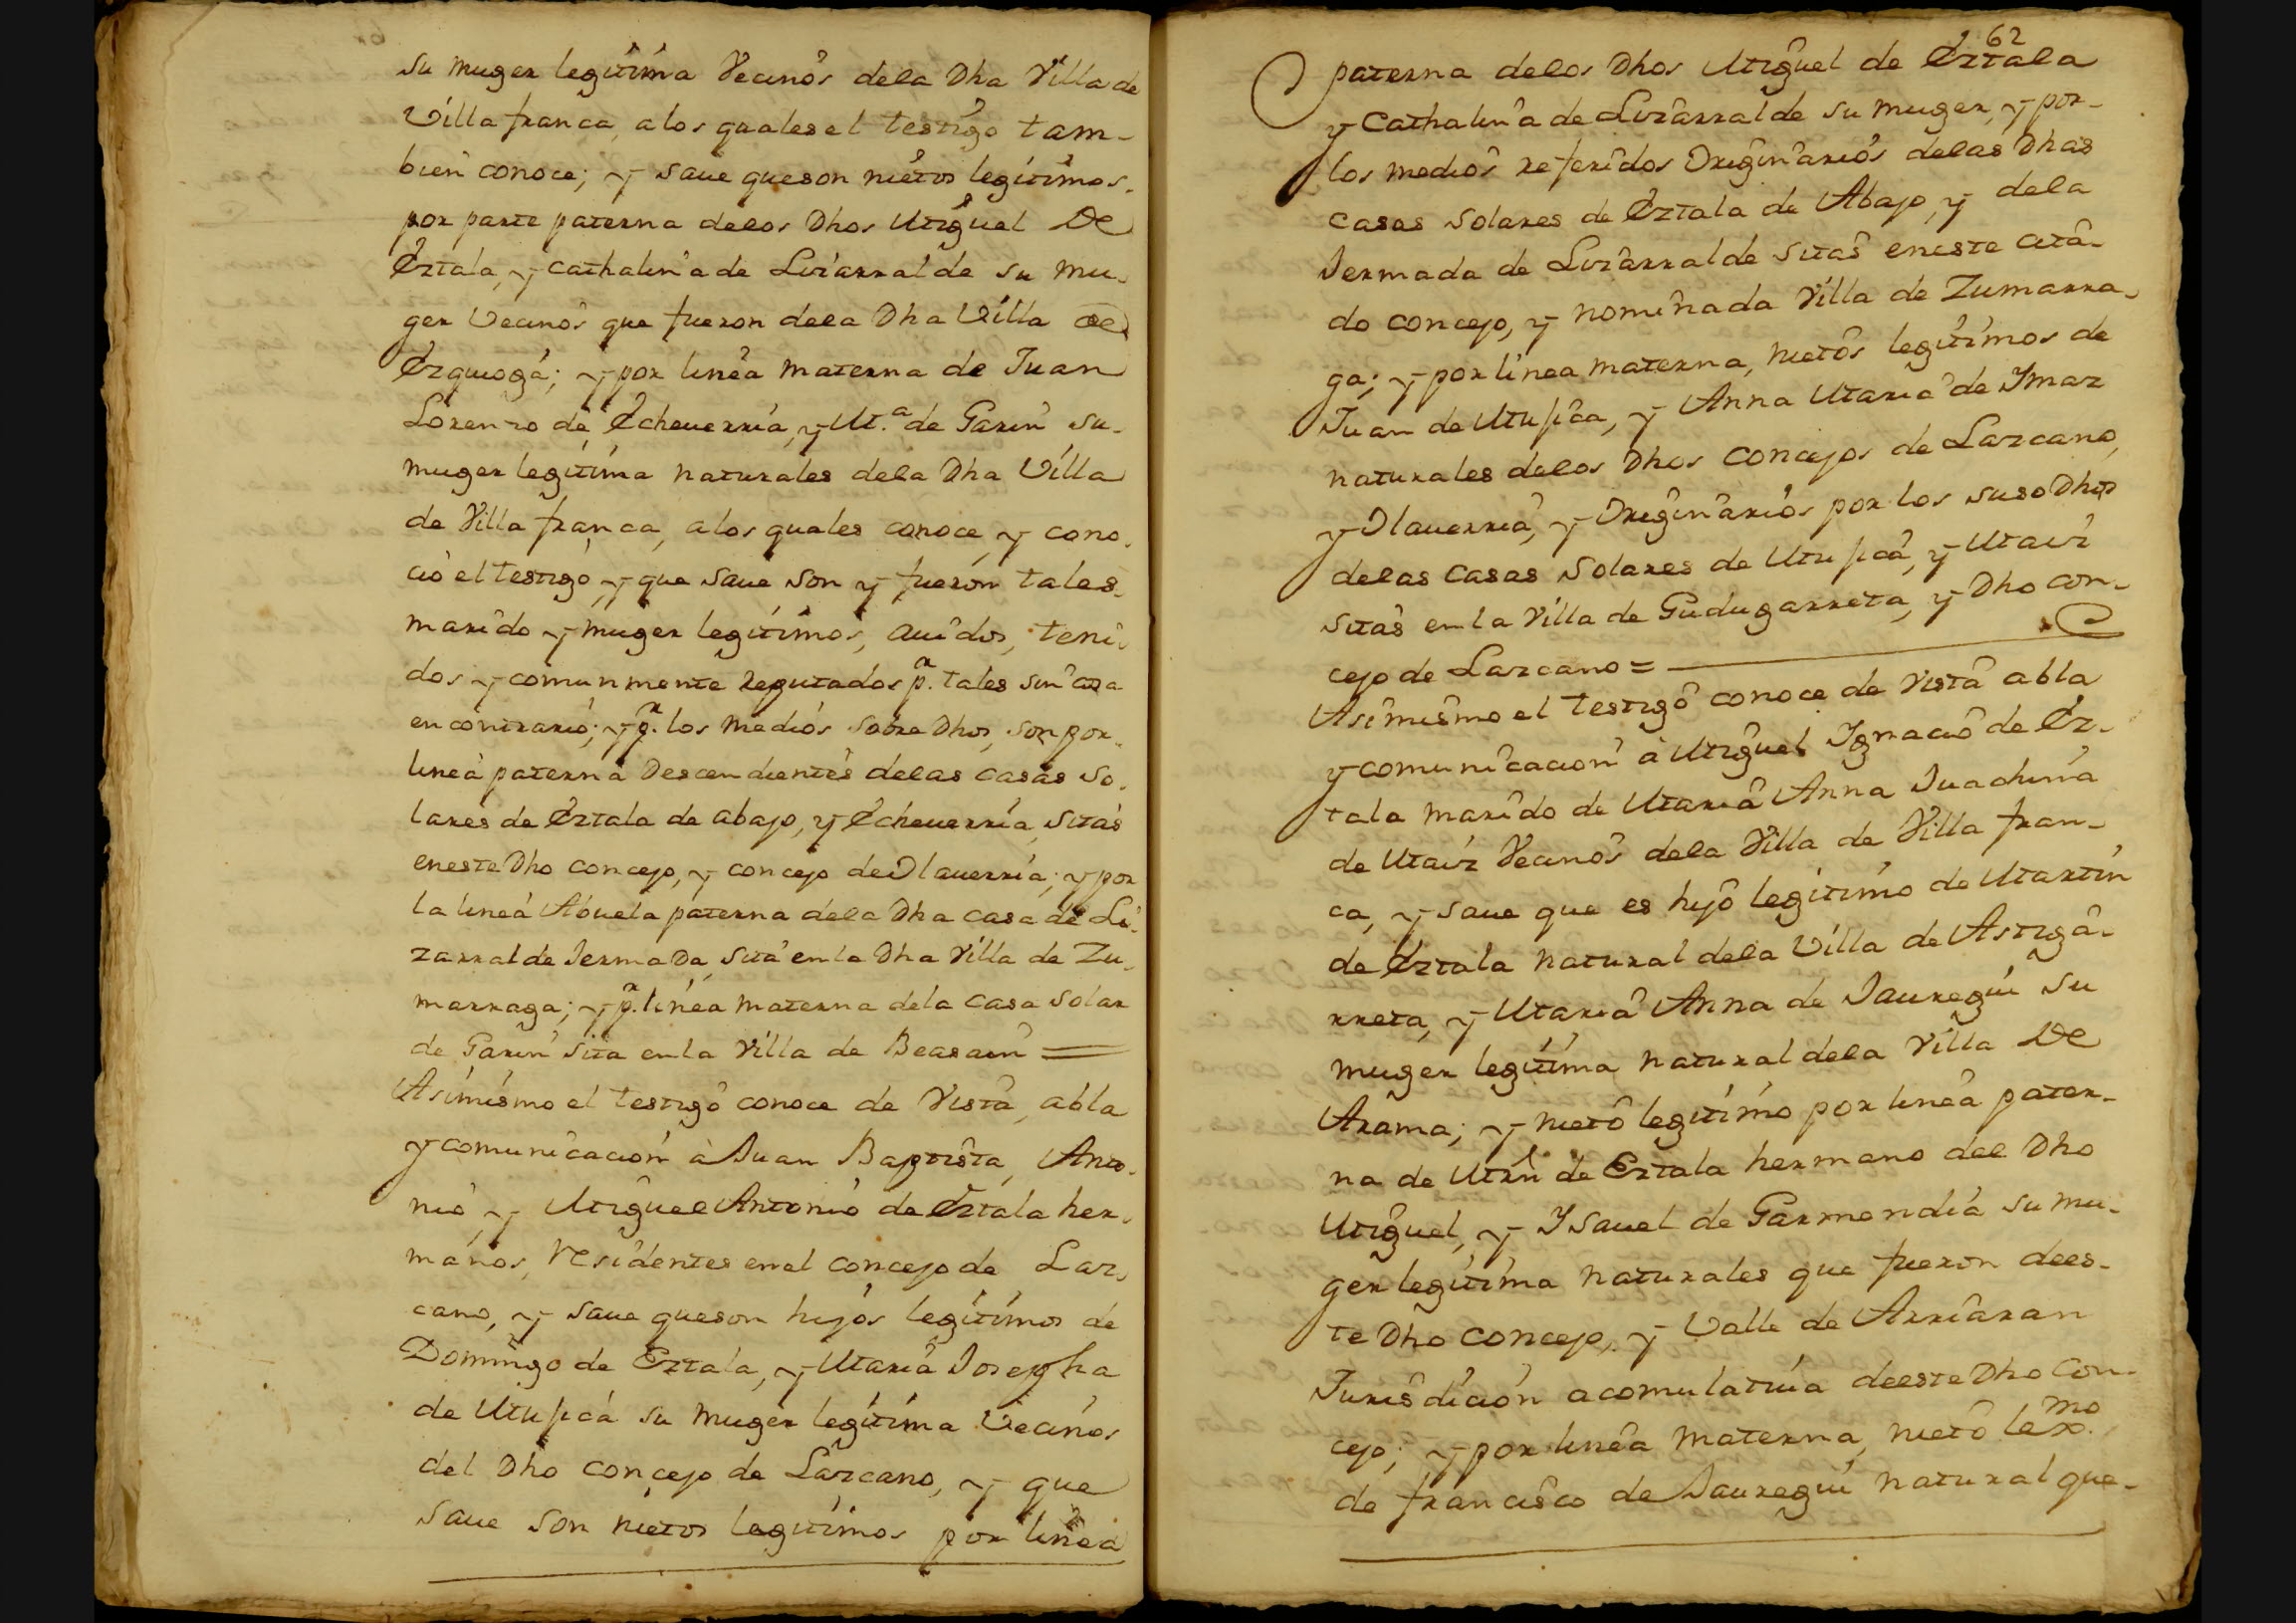 su muger legitima Vecinos dela Dha Villa de
Villafranca, alos quales el testigo tam-
bien conoce; y saue queson nietos legitimos
por parte paterna delos Dhos Miguel De
Eztala, y Cathalina de Lizarralde su mu-
ger Vecinos que fueron dela Dha Villa de
Ezquioga; y por linea materna de Juan
Lorenzo de Echeuerria, y M.ª de Garin su
muger legitima naturales dela Dha Villa
de Villafranca, alos quales conoce, y cono-
ció el testigo, y que saue son y fueron tales
marido y muger legitimos, auidos, teni-
dos y comunmente reputados p.r tales sin cosa
en contrario; y p.r los medios sobre Dhos, son por
linea paterna Descendientes delas casas so-
lares de Eztala de abajo, y Echeuerria, sitas
eneste Dho concejo, y concejo de Olauerria; y por
la linea Abuela paterna dela Dha casa de Li-
zarralde IermaDa, sita en la Dha Villa de Zu-
marraga; y p.r linea materna dela casa solar
de Garin sita en la Villa de Beasain =
Asimismo el testigo conoce de Vista, abla
y comunicacion à Juan Baptista, Anto-
nio, y Miguel Antonio de Eztala her-
manos, residentes en el concejo de Laz-
cano, y saue queson hijos legitimos de
Domingo de Eztala, y Maria Josepha
de Mujica su muger legitima Vecinos
del Dho concejo de Lazcano, y que
saue son nietos legitimos por linea
62
paterna delos Dhos Miguel de Eztala
y Cathalina de Lizarralde su muger, y por
los medios referidos Originarios delas Dhas
casas solares de Eztala de Abajo, y dela
Iermada de Lizarralde sitas eneste cita-
do concejo, y nominada Villa de Zumarra-
ga; y por linea materna, nietos legitimos de
Juan de Mujica, y Anna Maria de Ymaz
naturales delos Dhos concejos de Lazcano,
y Olauerria, y Originarios por los suso Dhos
delas casas solares de Mujica, y Maiz
sitas en la Villa de Gudugarreta, y Dho con-
cejo de Lazcano =
Asimismo el testigo conoce de Vista abla
y comunicacion à Miguel Ignacio de Ez-
tala marido de Maria Anna Juachina
de Maiz Vecinos dela Villa de Villafran-
ca, y saue que es hijo legitimo de Martin
de Eztala natural dela Villa de Astiga-
rreta, y Maria Anna de Jauregui su
muger legitima natural dela Villa De
Arama; y nieto legitimo por linea pater-
na de Mrn de Eztala hermano del Dho
Miguel, y Ysauel de Garmendia su mu-
ger legitima naturales que fueron dees-
te Dho concejo, y Valle de Arriaran
Jurisdicion acomulatiua deeste Dho con-
cejo; y por linea materna, nieto lexmo.
de francisco de Jauregui natural que